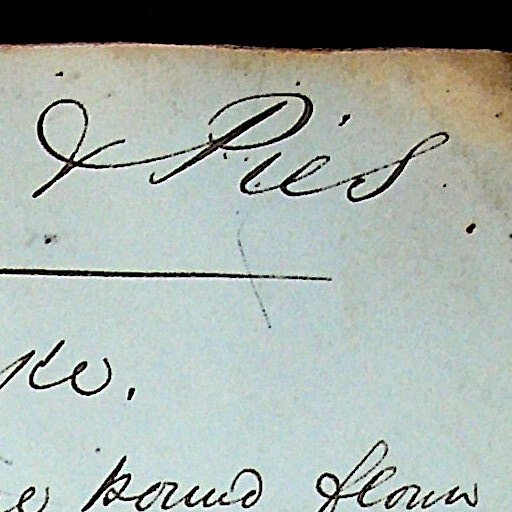 & Pies.
ke.
pound flour